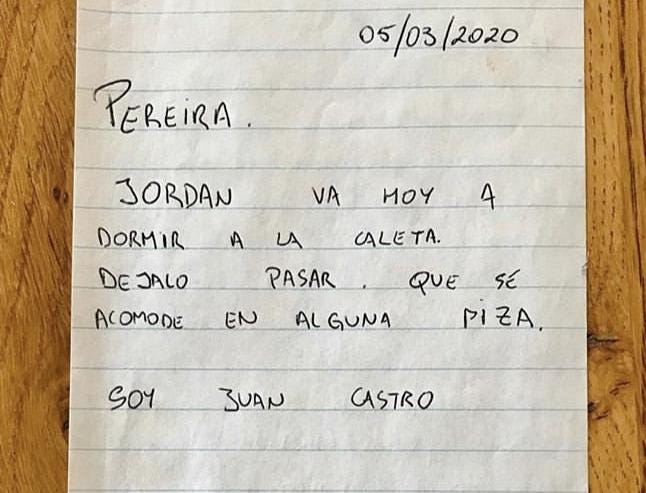 05/03/2020
PEREIRA.
JORDAN VA HOY A
DORMIR A LA CALETA.
DEJALO PASAR. QUE SÉ
ACOMODE EN ALGUNA PIZA.
SOY JUAN CASTRO